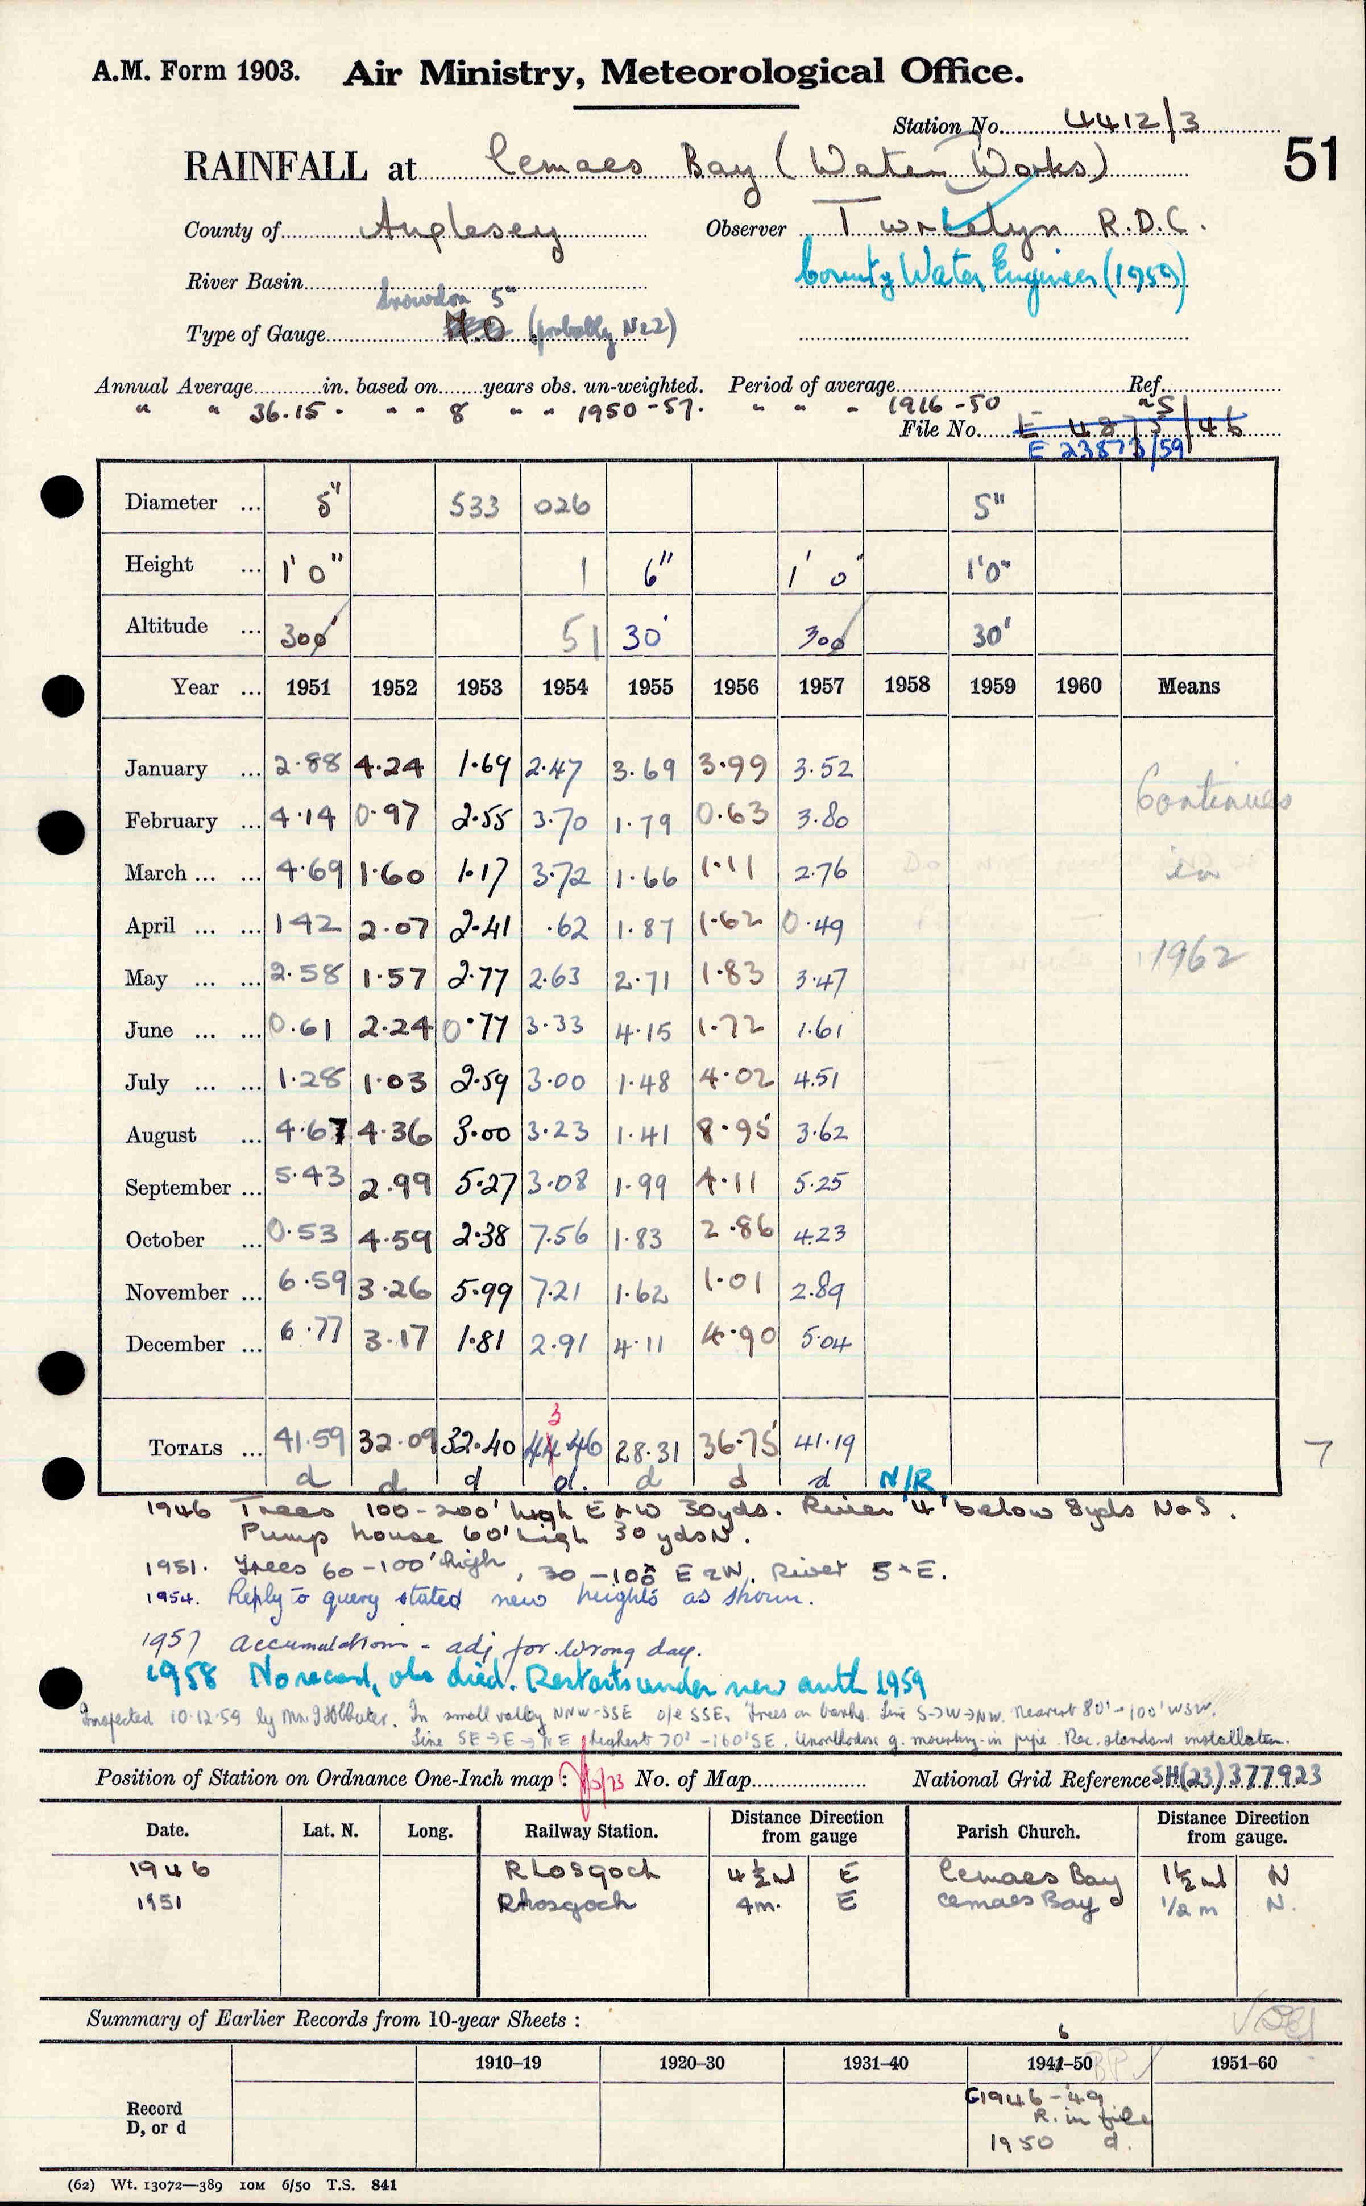 A.M. Form 1903. Air Ministry, Meteorological Office.
Station No. 4412/3
51
RAINFALL at Cemaes Bay (Water Works)
County of Anglesey Observer Twrcelyn R.D.C.
River Basin County Water Engineer (1959)
Snowdon 5"
Type of Gauge M.O (probably No2)
Annual Average in. based on years obs. un-weighted. Period of average Ref.
" " 36.15. " " 8 " " 1950-57. " " " 1916-50
File No. E 4875/46
E 23873/59
Diameter ... 5" 533 026 5"
Height ... 1'0" 1 6" 1' 0" 1'0"
Altitude ... 300' 51 30' 300 30'
Year ... 1951 1952 1953 1954 1955 1956 1957 1958 1959 1960 Means
January ... 2.88 4.24 1.69 2.47 3.69 3.99 3.52
February ... 4.14 0.97 2.55 3.70 1.79 0.63 3.80
March ... ... 4.69 1.60 1.17 3.72 1.66 1.11 2.76
April ... ... 142 2.07 2.41 .62 1.87 1.62 0.49
May ... ... 2.58 1.57 2.77 2.63 2.71 1.83 3.47
June ... ... 0.61 2.24 0.77 3.33 4.15 1.72 1.61
July ... ... 1.28 1.03 2.59 3.00 1.48 4.02 4.51
August ... 4.67 4.36 3.00 3.23 1.41 8.95 3.62
September ... 5.43 2.99 5.27 3.08 1.99 4.11 5.25
October ... 0.53 4.59 2.38 7.56 1.83 2.86 4.23
November ... 6.59 3.26 5.99 7.21 1.62 1.01 2.89
December ... 6.77 3.17 1.81 2.91 4.11 4.90 5.04
Continues
in
1962
3
TOTALS ... 41.59 32.09 32.40 44.46 28.31 36.75 41.19
7
d d d d. d d d N/R
1946 Trees 100-200' high E & W 30yds. River 4' below 8yds N & S.
Pump house 60' high 30 yds N.
1951. Trees 60-100' high, 30-100 E & W. River 5 E.
1954. Reply to query stated new heights as shown.
1957 accumulations - adj for wrong day.
1958 No record, obs died. Restarts under new auth 1959
Inspected 10.12.59 by Mr. In small valley NNW-SSE o/e SSE. Trees on banks. Line S→W→NW. Nearest 80'-100' WSW.
Line SE→E→NE highest 70'-160' SE. Unorthodox g. mounting in pipe. Rec. standard installation.
Position of Station on Ordnance One-Inch map : No. of Map National Grid Reference SH(23)377923
Date. Lat. N. Long. Railway Station. Distance from gauge Direction Parish Church. Distance Direction from gauge.
1946 Rhosgoch 4½ml E Cemaes Bay 1½ml N
1951 Rhosgoch 4m. E Cemaes Bay 1/2 m N.
Summary of Earlier Records from 10-year Sheets :
6
1910–19 1920–30 1931–40 1941–50 1951–60
Record
D, or d
G1946-49
R. in file
1950 d.
(62) Wt. 13072—389 10M 6/50 T.S. 841